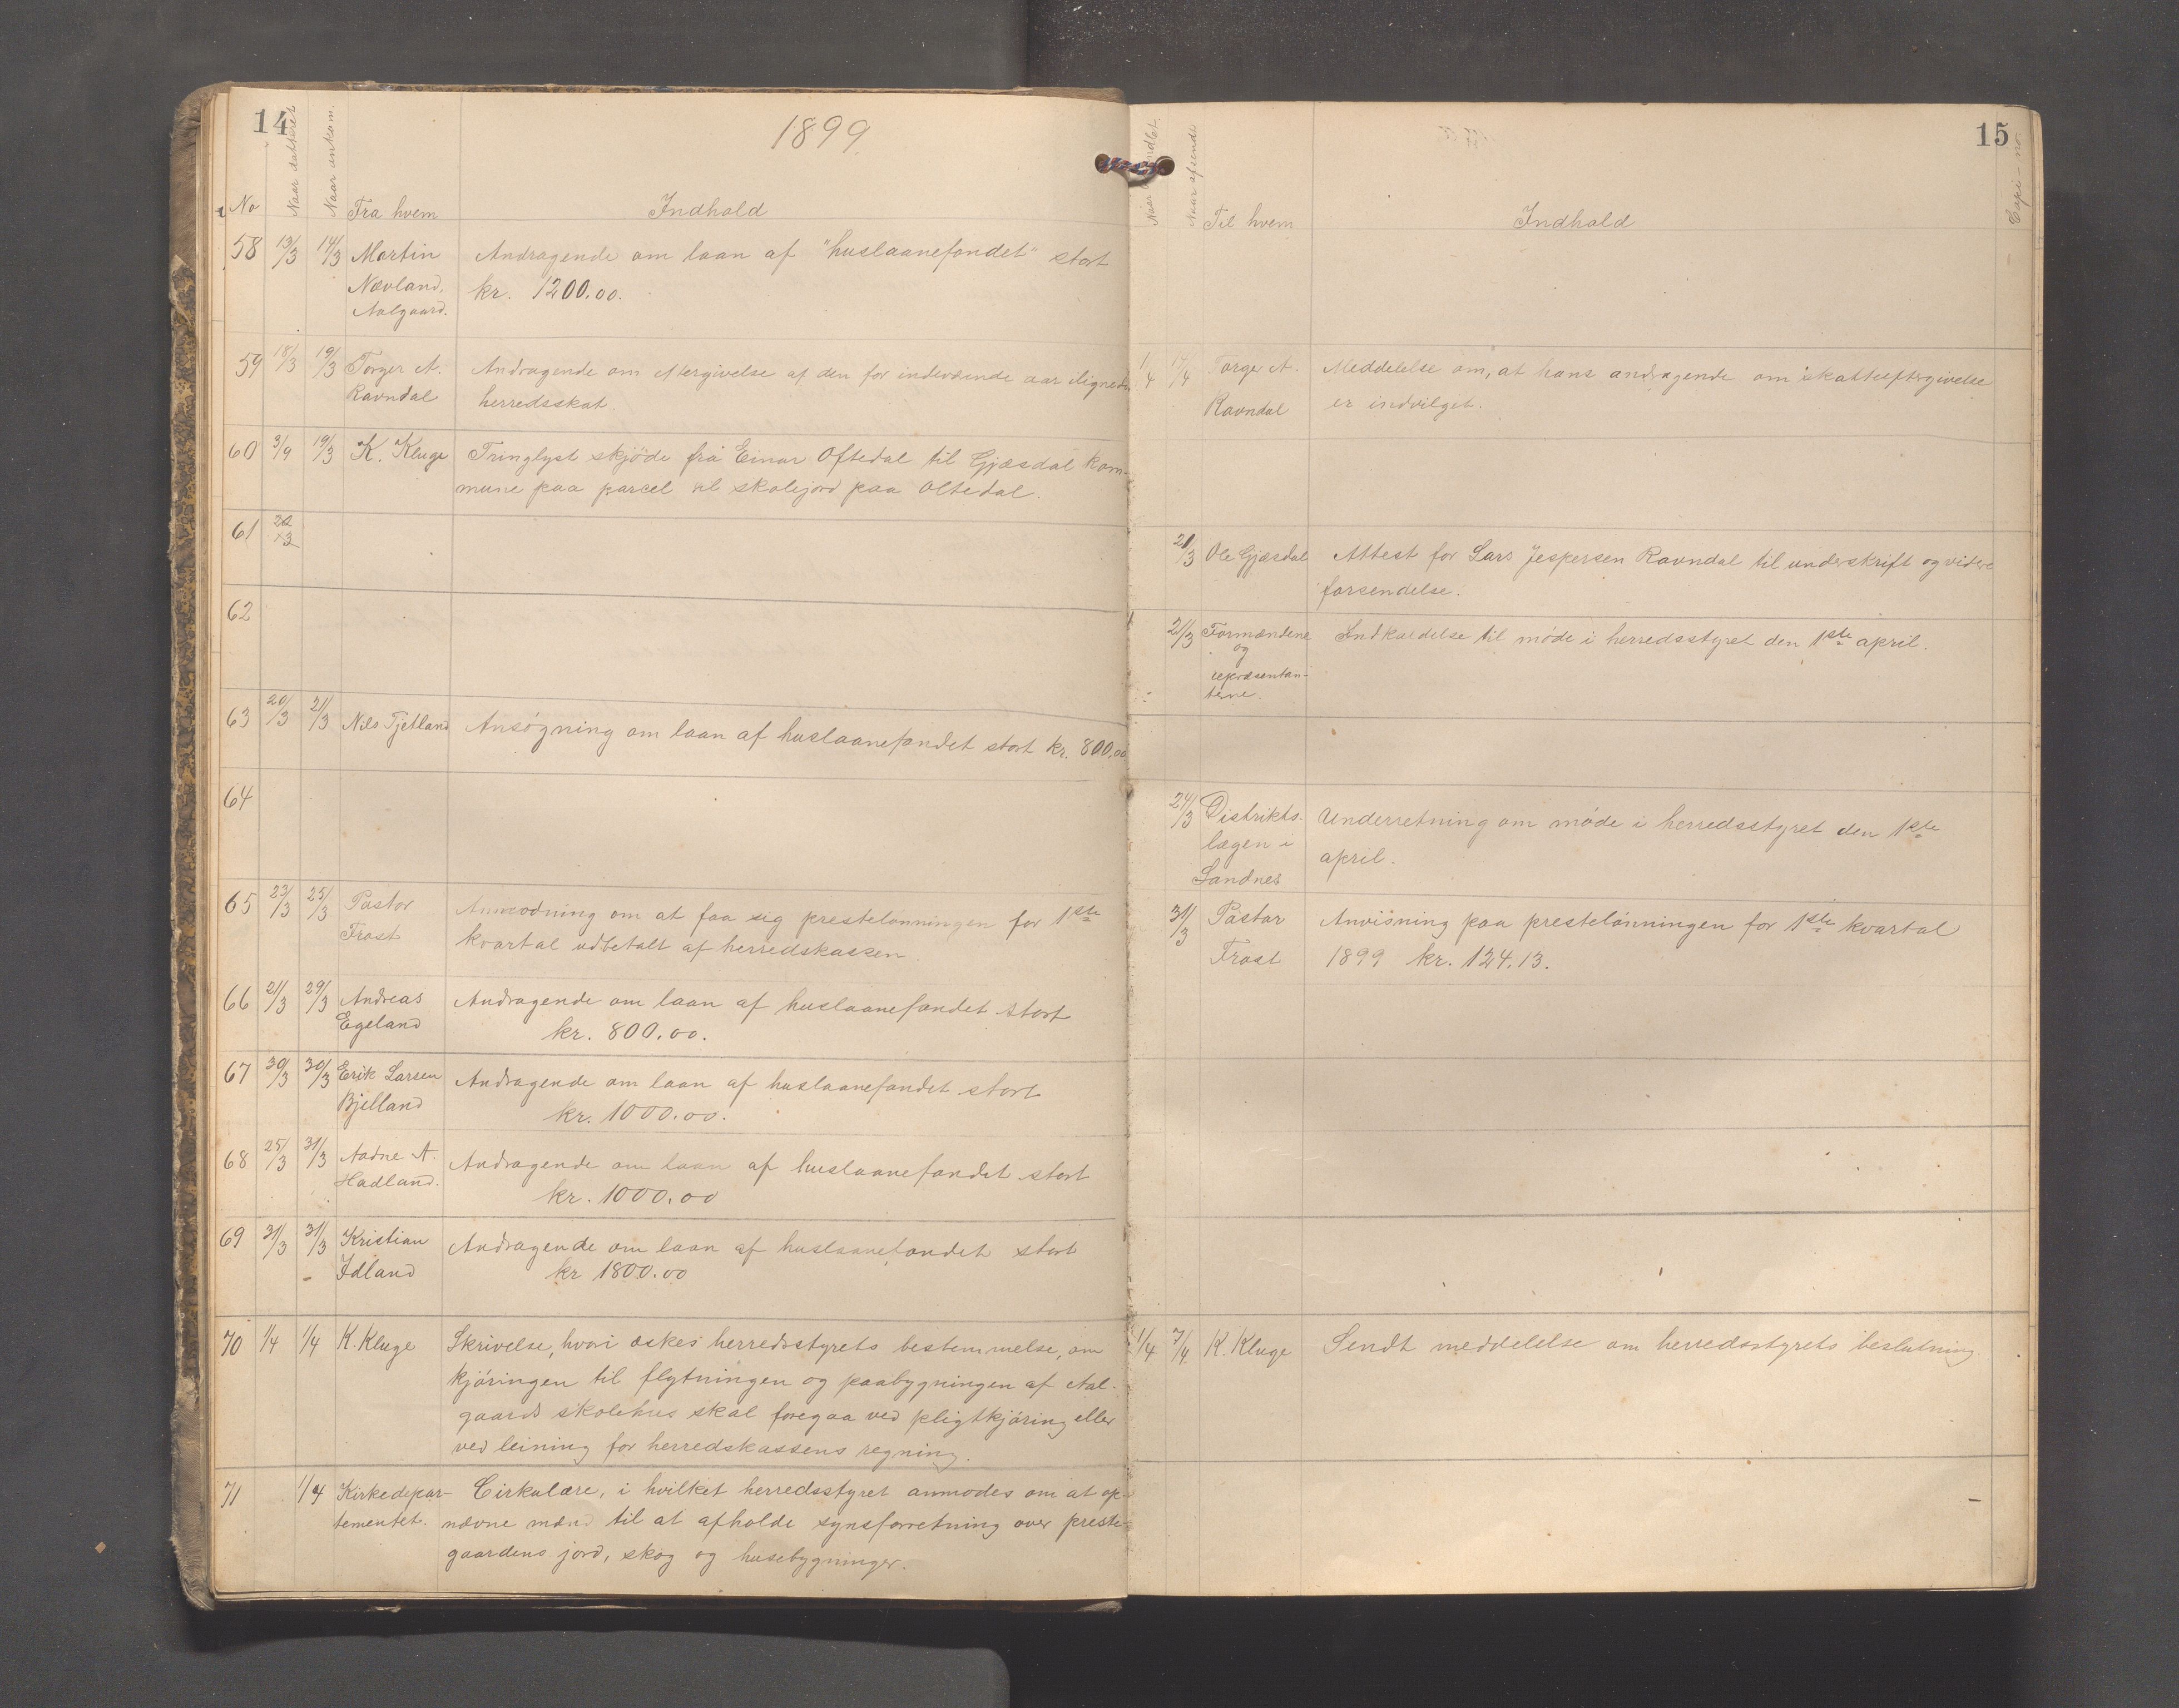 14
1899
No
Naar datteret
Naar ankom.
Fra hvem
Indhold
58 13/3 14/3 Martin Andragende om laan af "huslaanefondet" stort
Nævland, kr. 1200.00.
Aalgaard.
59 18/3 19/3 Torger A. Andragende om eftergivelse af den for indeværende aar ilignede
Ravndal herredsskat.
60 3/9 19/3 K. Kluge Tinglyst skjöde fra Einar Oftedal til Gjæsdal kom-
mune paa parcel til skolejord paa Oltedal.
61
62
63 20/3 21/3 Nils Tjetland Ansøgning om laan af huslaanefondet stort kr. 800,00
64
65 23/3 25/3 Pastor Anmodning om at faa sig prestelønningen for 1ste
Frost kvartal udbetalt af herredskassen.
66 21/3 29/3 Andreas Andragende om laan af huslaanefondet stort
Egeland kr. 800.00.
67 30/3 30/3 Erik Larsen Andragende om laan af huslaanefondet stort
Bjelland kr. 1000.00.
68 25/3 31/3 Aadne A. Andragende om laan af huslaanefondet stort
Hadland. kr. 1000.00
69 31/3 31/3 Kristian Andragende om laan af huslaanefondet stort
Idland kr 1800.00
70 1/4 1/4 K. Kluge Skrivelse, hvori æskes herredsstyrets bestemmelse, om
kjøringen til flytningen og paabygningen af Aal-
gaards skolehus skal foregaa ved pligtkjøring eller
ved leining for herredskassens regning.
71 1/4 Kirkedepar- Cirkulære, i hvilket herredsstyret anmodes om at op-
tementet. nævne mænd til at afholde synsforretning over preste-
gaardens jord, skog og husebygninger.
15
Naar afsendt
Til hvem
Indhold
1/4 17/4 Torger A. Meddelelse om, at hans andragende om skatteeftergivelse
Ravndal er indvilget.
21/3 Ole Gjæsdal Attest for Lars Jespersen Ravndal til underskrift og videre
forsendelse.
21/3 Formændene Indkaldelse til møde i herredsstyret den 1ste april.
og
repræsentan-
terne.
24/3 Distrikts- Underretning om møde i herredsstyret den 1ste
lægen i april.
Sandnes
31/3 Pastor Anvisning paa prestelønningen for 1ste kvartal
Frost 1899 kr. 124.13.
1/4 7/4 K. Kluge Sendt meddelelse om herredsstyrets beslutning.